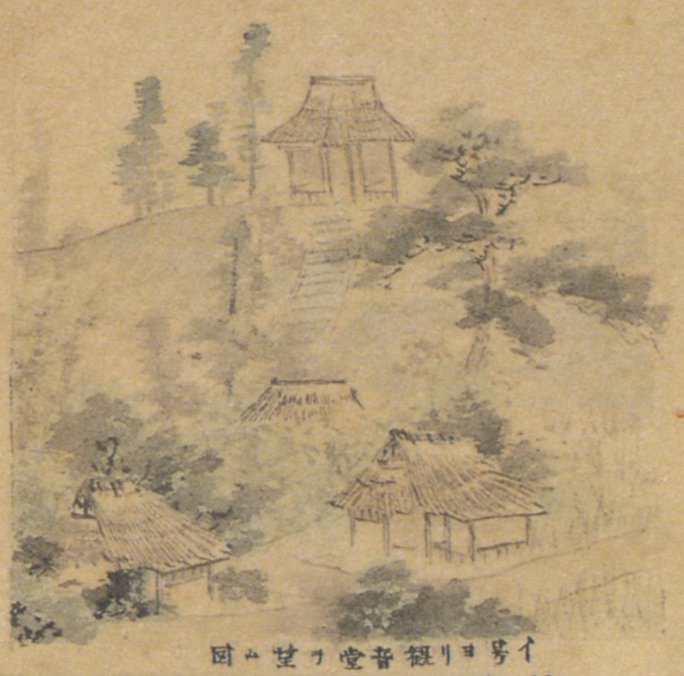 イ号ヨリ観音堂ヲ望ム図